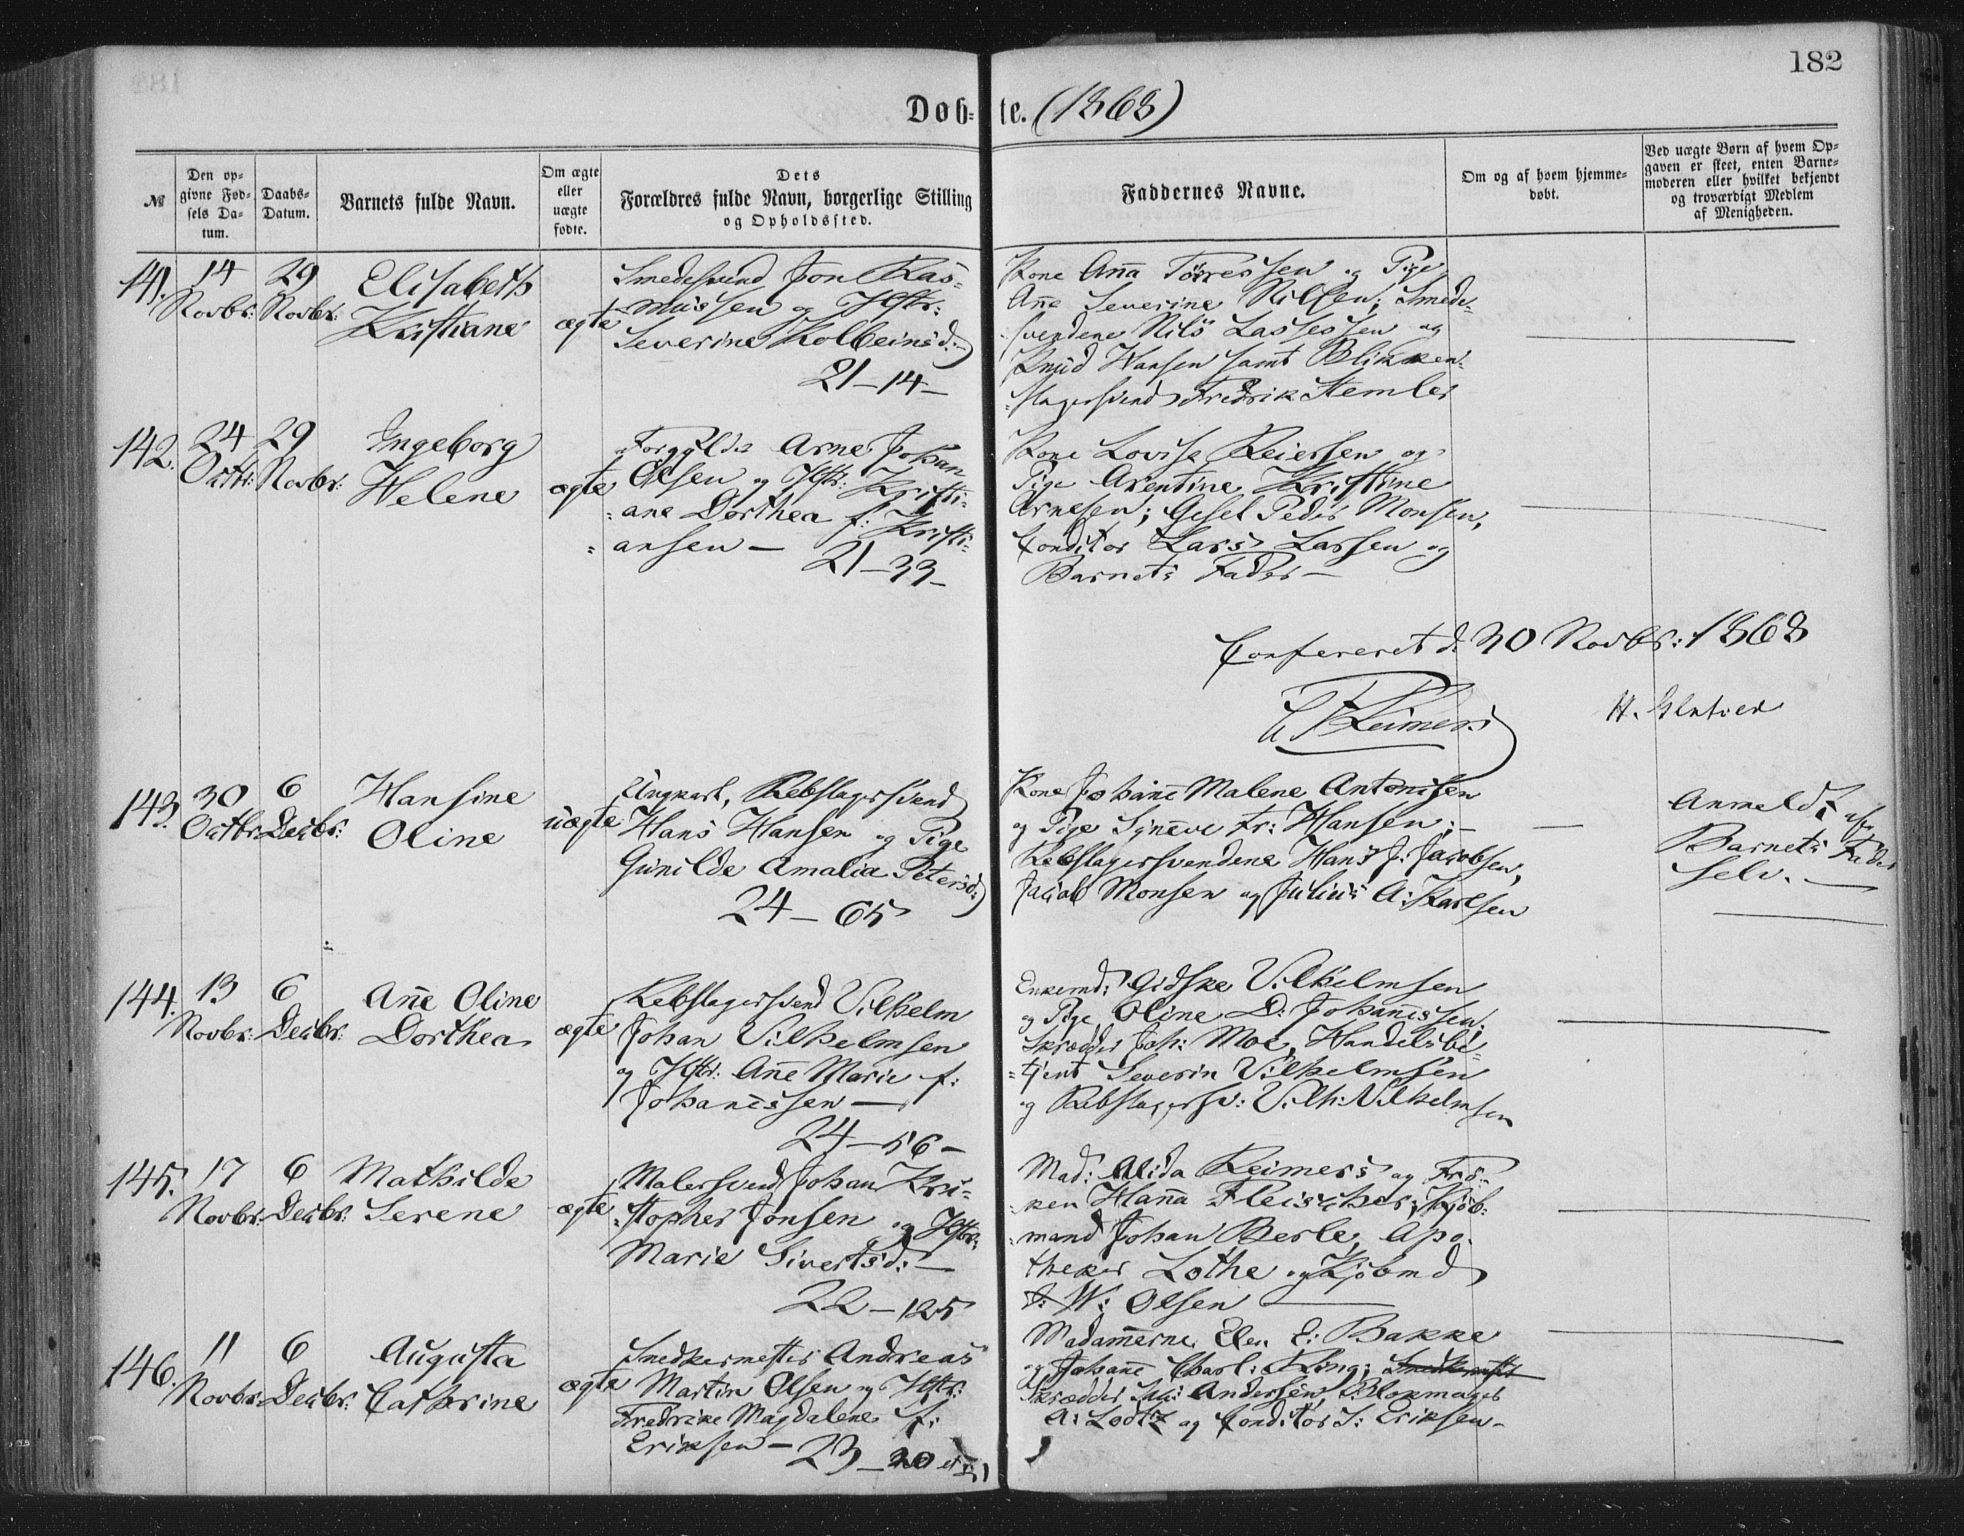 182
Døb-te. (1868)
№
Den op-
givne Fød-
sels Da-
tum.
Daabs-
Datum.
Barnets fulde Navn.
Om ægte
eller
uægte
fødte.
Dets
Forældres fulde Navn, borgerlige Stilling
og Opholdssted.
Faddernes Navne.
Om og af hvem hjemme-
døbt.
Ved uægte Børn af hvem Op-
gaven er skeet, enten Barne-
moderen eller hvilket bekjendt
og troværdigt Medlem
af Menigheden.
141. 14 Novbr: 29 Novbr:
Elisabeth
Kristiane
ægte
Smedesvend Jon Ras-
mussen og Hstr:
Severine Kolbeinsd:
21-14-
Kone Anna Tørressen og Pige
Anne Severine Nilsen; Smede-
svendene Nils Lassessen og
Knud Hansen samt Blikken-
slagersvend Fredrik Stemler
142. 24 Octbr: 29 Novbr:
Ingeborg
Helene
ægte
Forgylder Arne Johan
Olsen og Hstr: Kristi-
ane Dorthea f: Kristi-
ansen —
21-33-
Kone Lovise Reiersen og
Pige Arentine Kristine
Arnesen; Gesel Peder Monsen,
Conditor Lars Larsen og
Barnets Fader —
Confereret d. 30 Novbr: 1868
Reimers
143. 30 Octbr: 6 Decbr:
Hansine
Oline
uægte
Ungkarl, Rebslagersvend
Hans Hansen og Pige
Gunilde Amalia Petersd:
24-65
Kone Johanne Malene Antonisen
og Pige Synneve Fr: Hansen; —
Rebslagersvendene Hans J: Jacobsen,
Jacob Monsen og Julius A: Karlsen
Anmeldt af
Barnets Fader
selv. —
144. 13 Novbr: 6 Decbr:
Anne Oline
Dorthea
ægte
Rebslagersvend Vilhelm
Johan Vilhelmsen
og Hstr: Anne Marie f:
Johannessen —
24-56-
Enkemd: Gidske Vilhelmsen
og Pige Oline D: Johannessen;
Skrædder Joh: Moe, Handelsbe-
tjent Severin Vilhelmsen
og Rebslagersv: Vilh: Vilhelmsen
145. 17 Novbr: 6 Decbr:
Mathilde
Serene
ægte
Malersvend Johan Kri-
stopher Jonsen og Hstr:
Marie Sivertsd: —
22-125
Mad: Alida Reimers og Frø-
ken Hanna Fleischer; Kjøb-
mand Johan Berle, Apo-
theker Lothe og Kjøbmd
J: W: Olsen —
146. 11 Novbr: 6 Decbr:
Augusta
Cathrine
ægte
Snedkermester Andreas
Martin Olsen og Hstr:
Fredrike Magdalene f:
Eriksen —
23-30
Madammerne Elen E: Bakke
og Johanne Charl: Kling; Snedkermester
Skrædder Andersen, Blokmager
A: Lootz og Conditor J: Eriksen —